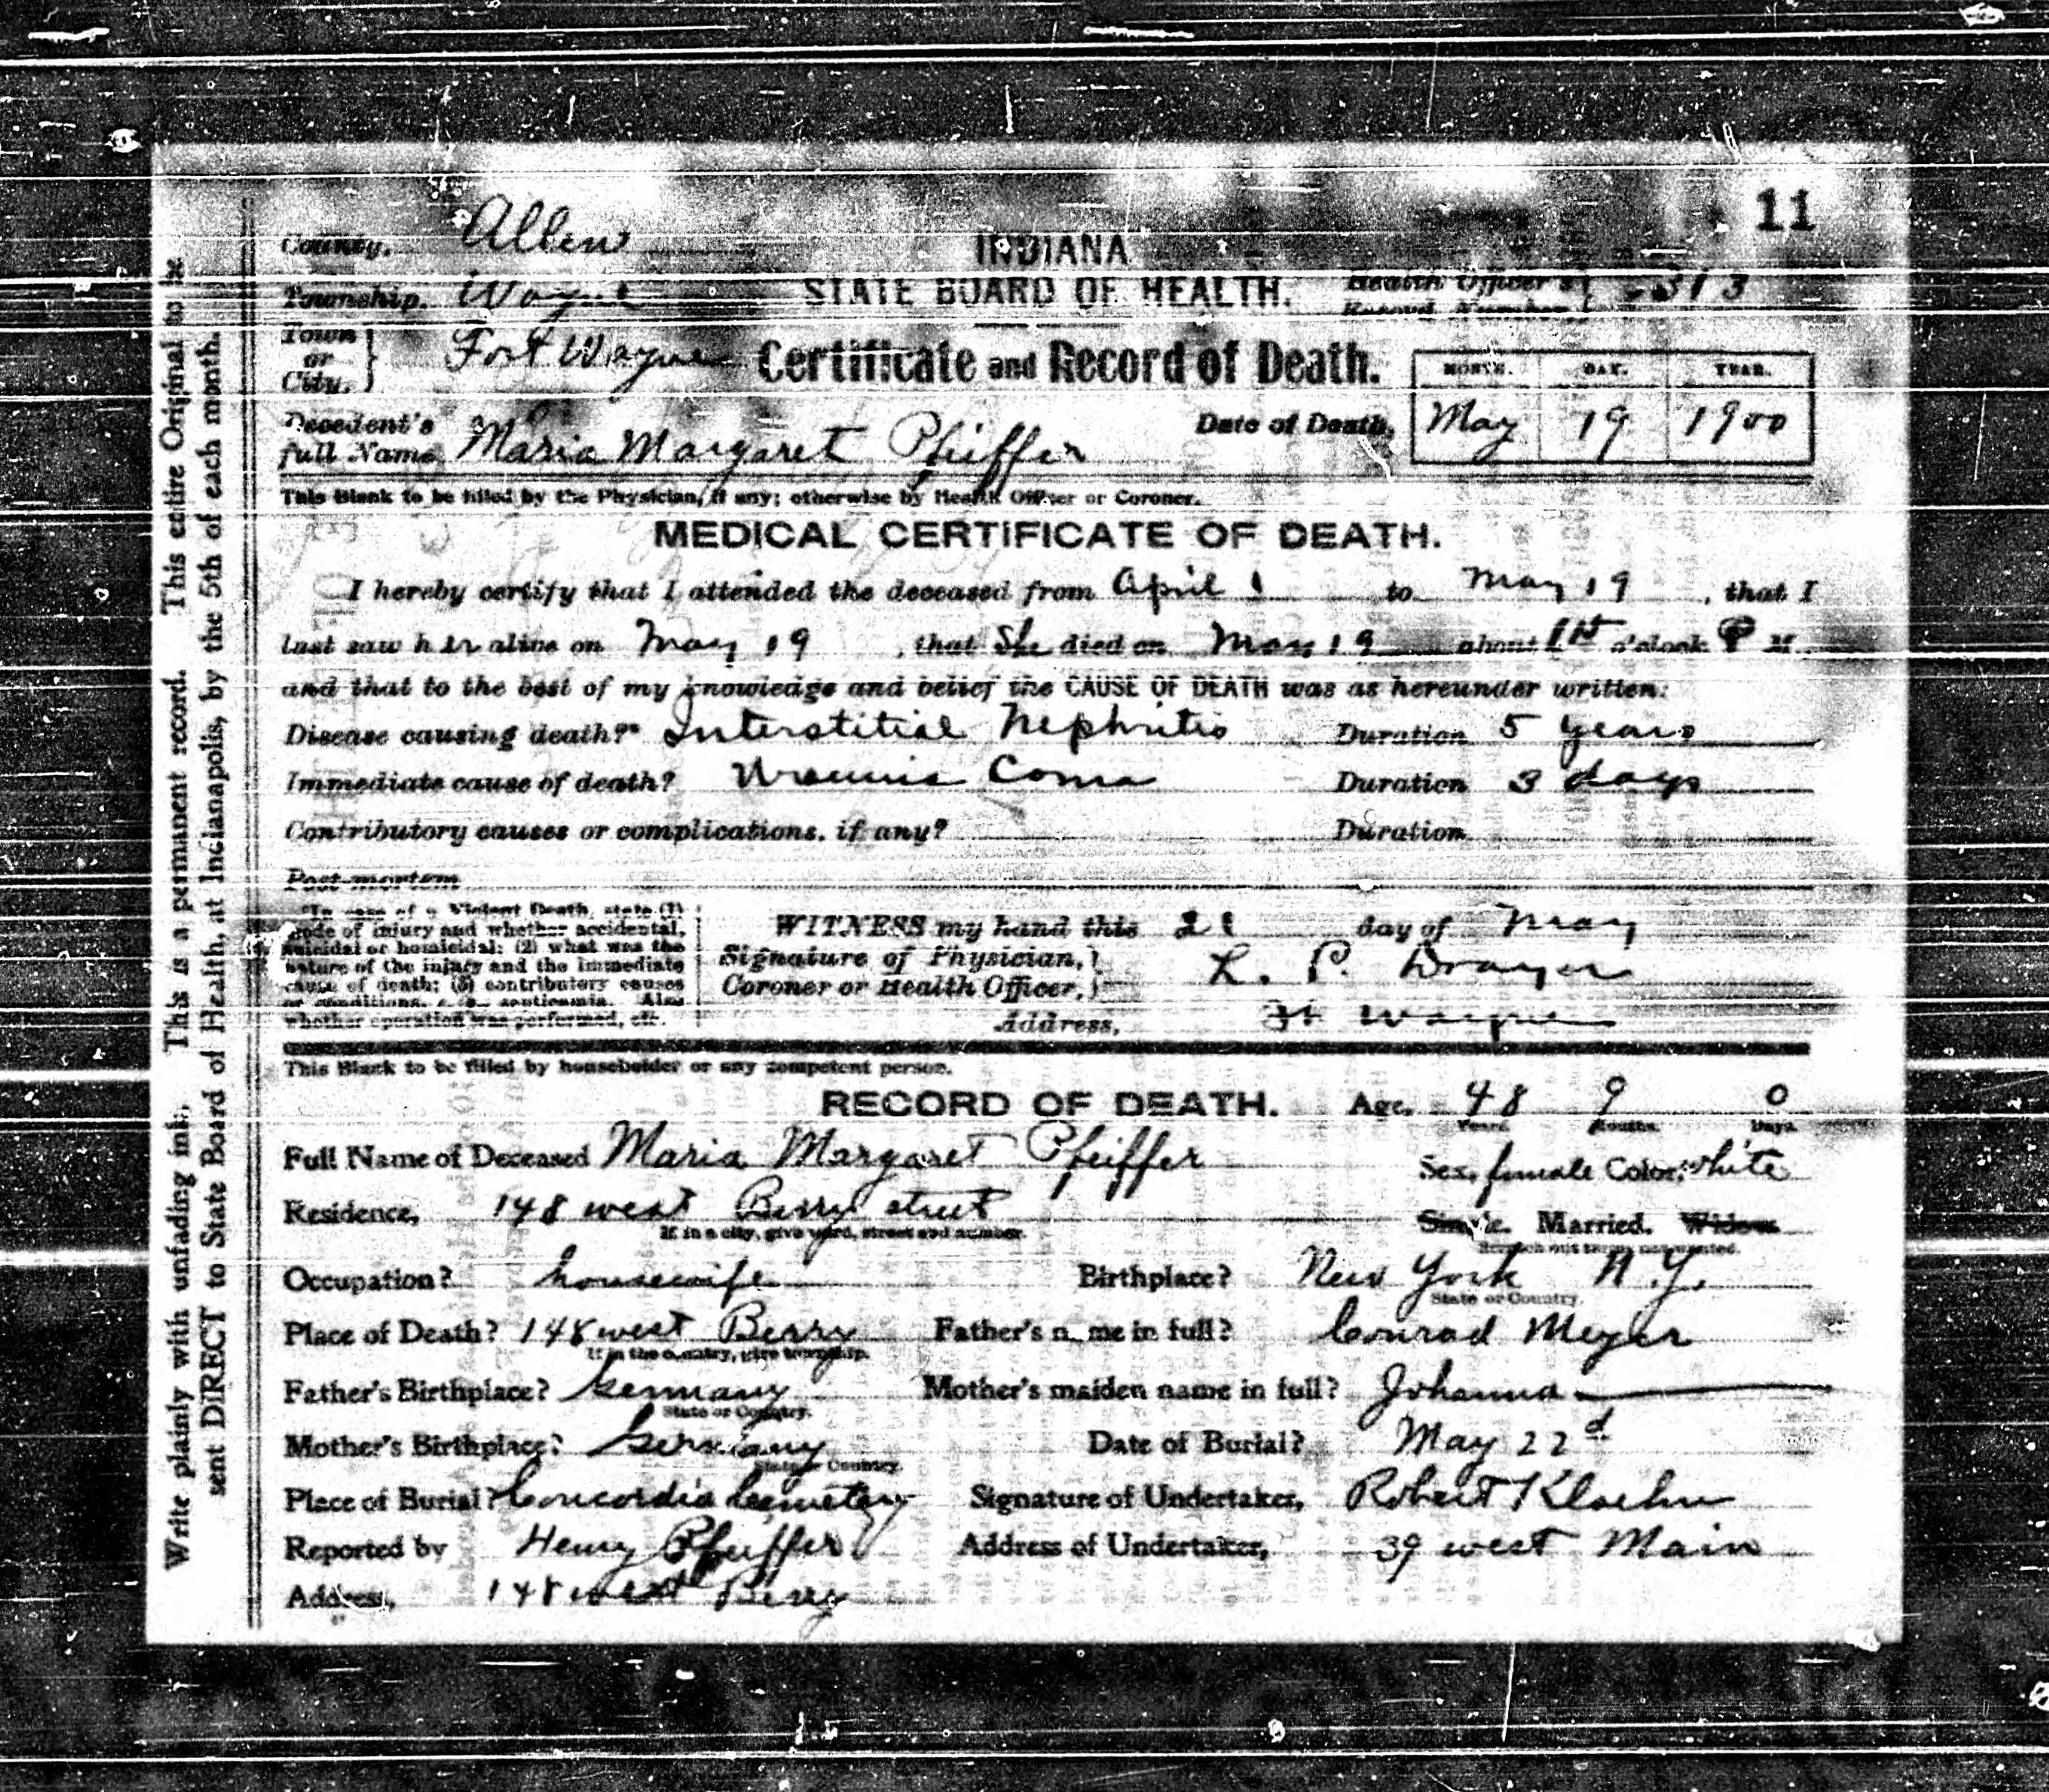 11
County, Allen
INDIANA
Township, Wayne
STATE BOARD OF HEALTH.
Health Officer's } 313
Record Number }
Town or City, } Fort Wayne
Certificate and Record of Death.
MONTH. DAY. YEAR.
Decedent's full Name, Maria Margaret Pfeiffer
Date of Death, May 19 1900
This Blank to be filled by the Physician, if any; otherwise by Health Officer or Coroner.
MEDICAL CERTIFICATE OF DEATH.
I hereby certify that I attended the deceased from April 1 to May 19, that I
last saw her alive on May 19, that She died on May 19 about o'clock P M.,
and that to the best of my knowledge and belief the CAUSE OF DEATH was as hereunder written:
Disease causing death?* Interstitial Nephritis Duration 5 years
Immediate cause of death? Uraemia Coma Duration 3 days
Contributory causes or complications, if any? Duration
Post-mortem
*In case of a Violent Death, state (1)
mode of injury and whether accidental,
suicidal or homicidal; (2) what was the
nature of the injury and the immediate
cause of death; (3) contributory causes
or conditions, e. g., septicemia. Also
whether operation was performed, etc.
WITNESS my hand this 21 day of May
Signature of Physician, } L. P. Drayer
Coroner or Health Officer, }
Address, Ft Wayne
This Blank to be filled by householder or any competent person.
RECORD OF DEATH. Age, 48 9 0
Years. Months. Days.
Full Name of Deceased Maria Margaret Pfeiffer Sex, female Color, white
Residence, 148 west Berry street Single. Married. Widow
If in a city, give ward, street and number. Scratch out terms not wanted.
Occupation? housewife Birthplace? New York N.Y.
State or Country.
Place of Death? 148 west Berry Father's name in full? Conrad Meyer
If in the country, give township.
Father's Birthplace? Germany Mother's maiden name in full? Johanna
State or Country.
Mother's Birthplace? Germany Date of Burial? May 22d
State or Country.
Place of Burial? Concordia Cemetery Signature of Undertaker, Robert Klaehn
Reported by Henry Pfeiffer Address of Undertaker, 39 west Main
Address, 148 west Berry
Write plainly with unfading ink. This is a permanent record. This entire Original to be
sent DIRECT to State Board of Health, at Indianapolis, by the 5th of each month.